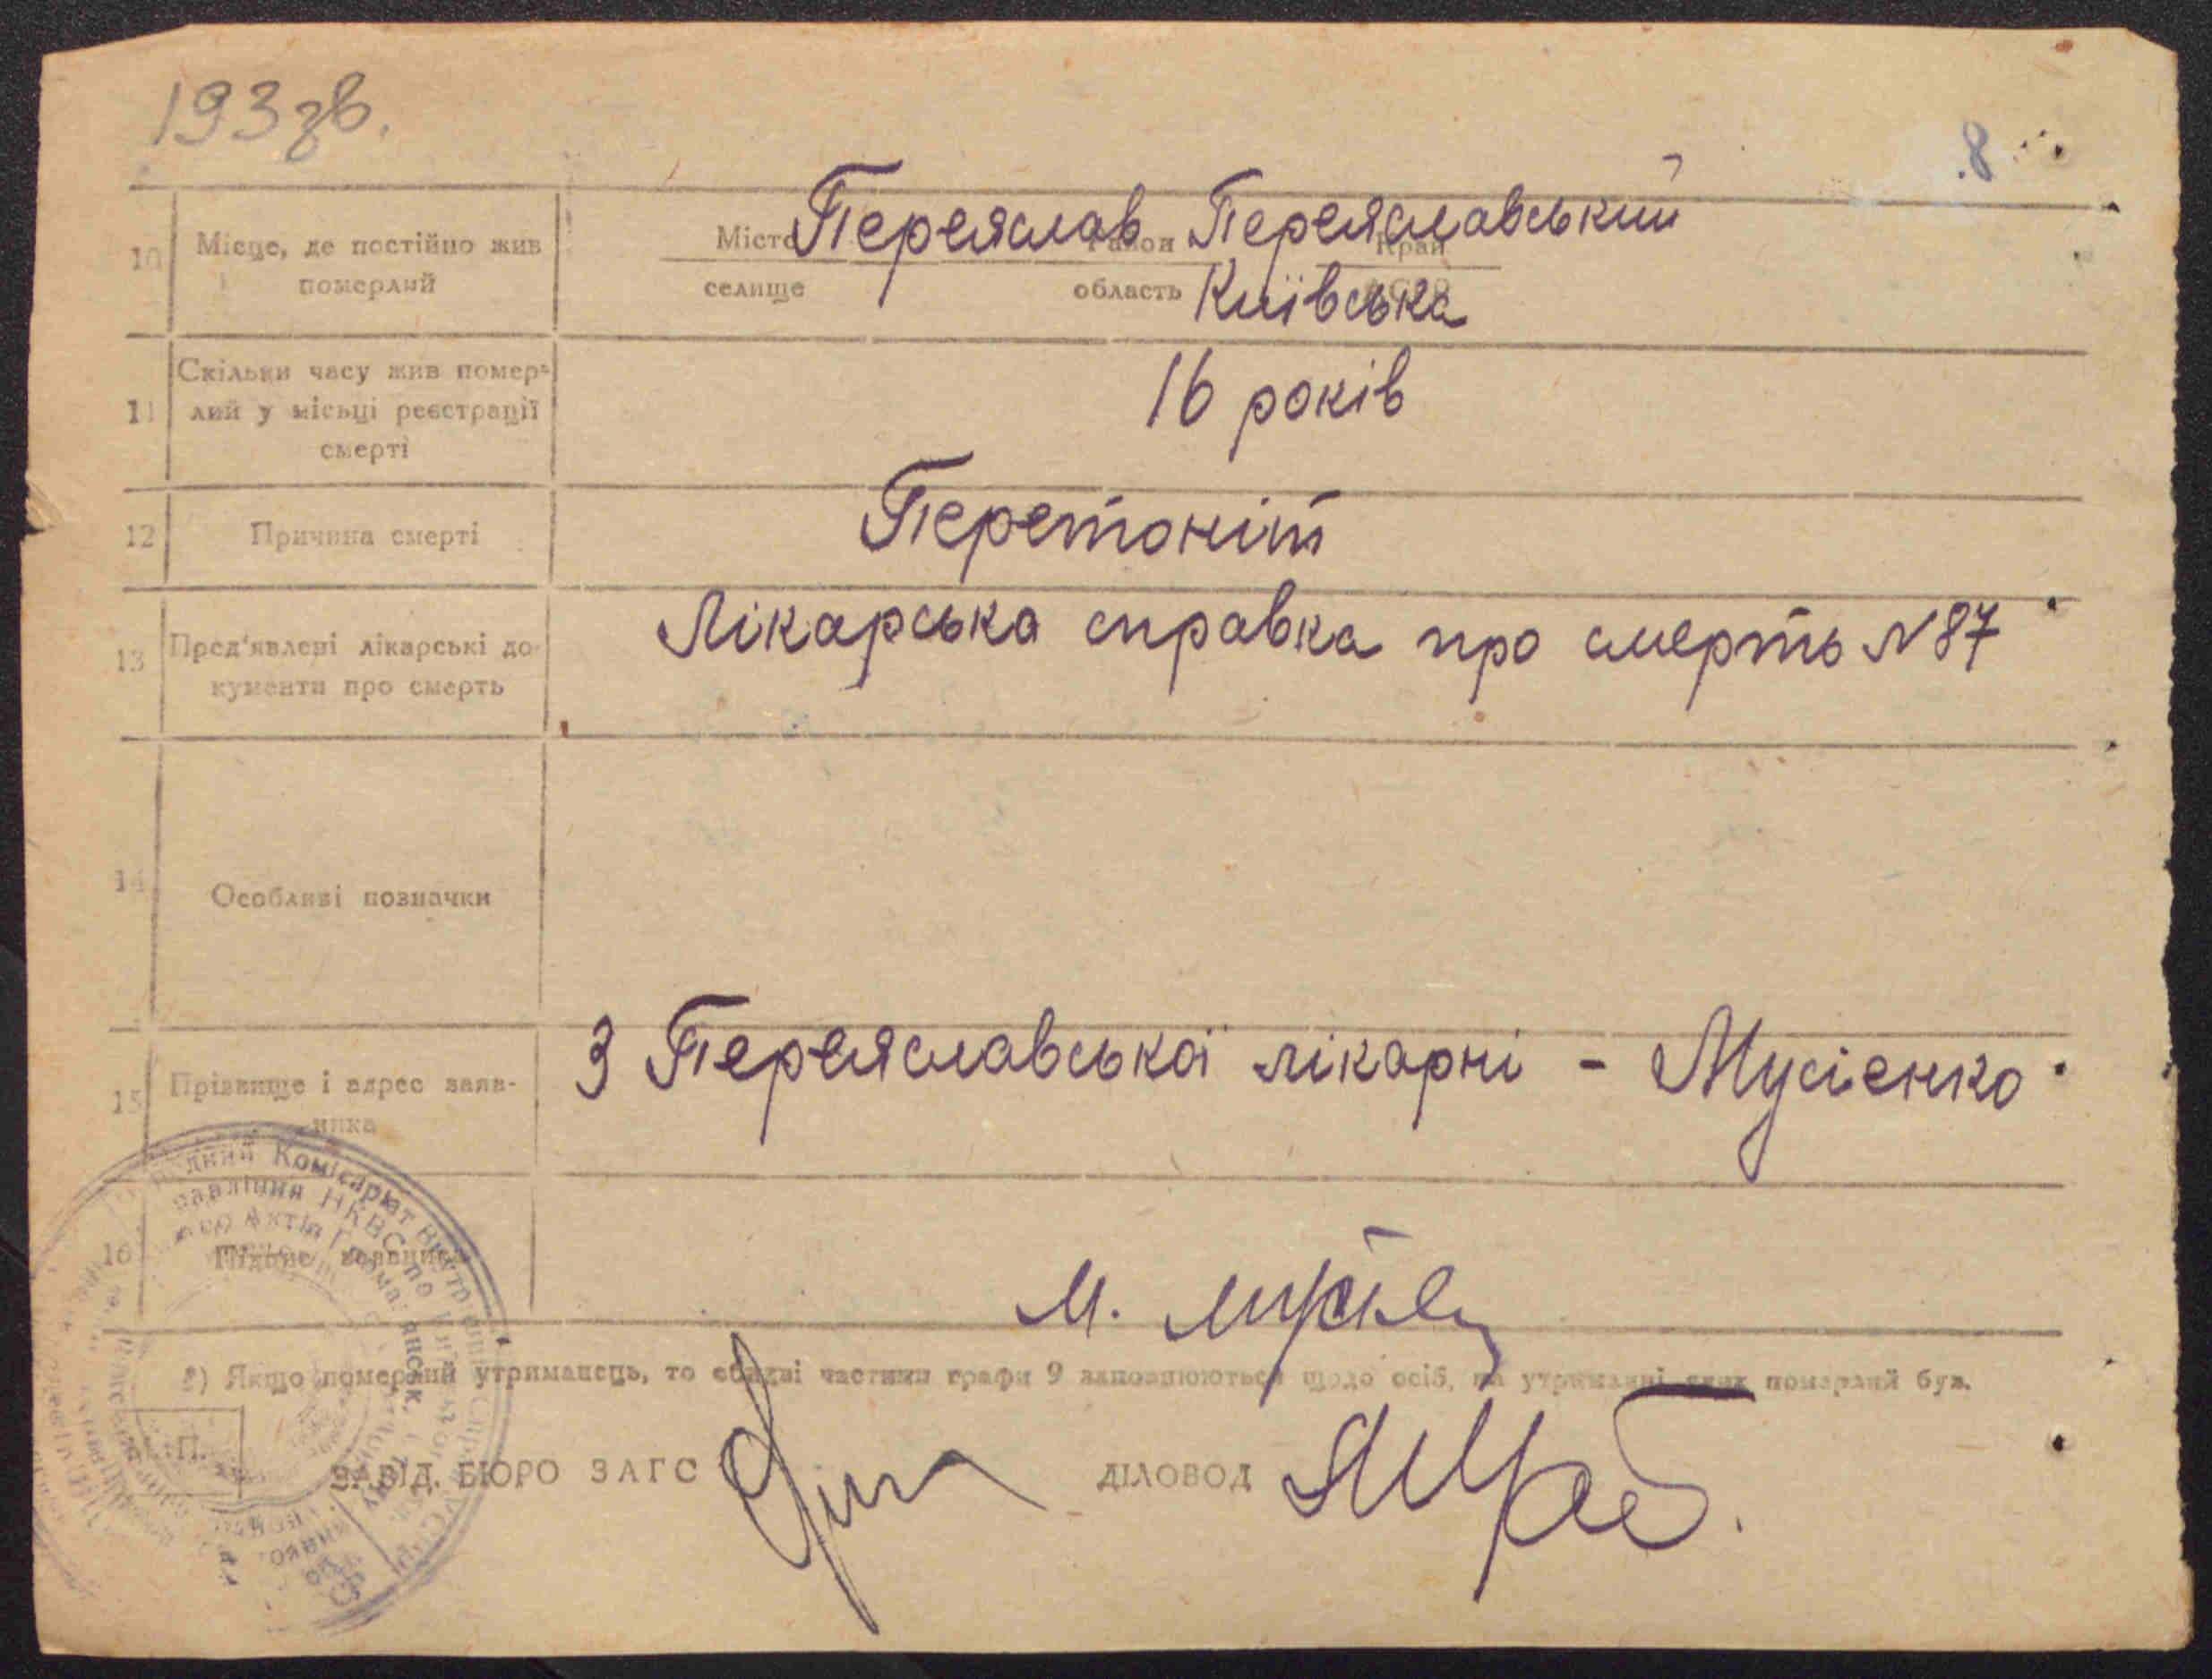 193 зв.
8
10 Місце, де постійно жив померлий
Місто Переяслав Район Переяславський Край
селище область Київська
11 Скільки часу жив помер-
лий у місьці реєстрації
смерті
16 років
12 Причина смерті
Перетоніт
13 Пред'явлені лікарські до-
кументи про смерть
Лікарська справка про смерть №87
14 Особливі позначки
15 Прізвище і адрес заяв-
ника
З Переяславської лікарні - Мусієнко
16 Підпис
М.
2) Якщо померлий утриманець, то обидві частини графи 9 заповнюються щодо осіб, на утриманні яких померлий був.
М. П.
ЗАВІД. БЮРО ЗАГС
ДІЛОВОД
Комісаріят Внутрішніх Справ
НКВС по
Актів Грома